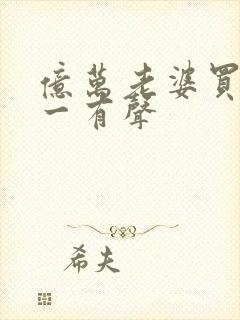 億萬老婆買
一有聲
希夫